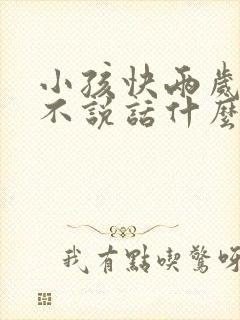 小孩快兩歲
不說話什麼
我有點喫驚呀